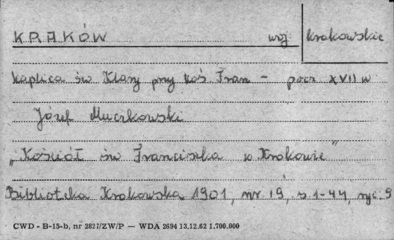 KRAKÓW woj. krakowskie
Kaplica św Klary przy koś. Fran - pocz XVII w
Józef Muczkowski
„Kościół św Franciszka w Krakowie"
Biblioteka Krakowska 1901, nr. 19, s. 1-44, ryc. 9
CWD - B-15-b, nr 2827/ZW/P — WDA 2694 13.12.62 1.700.000